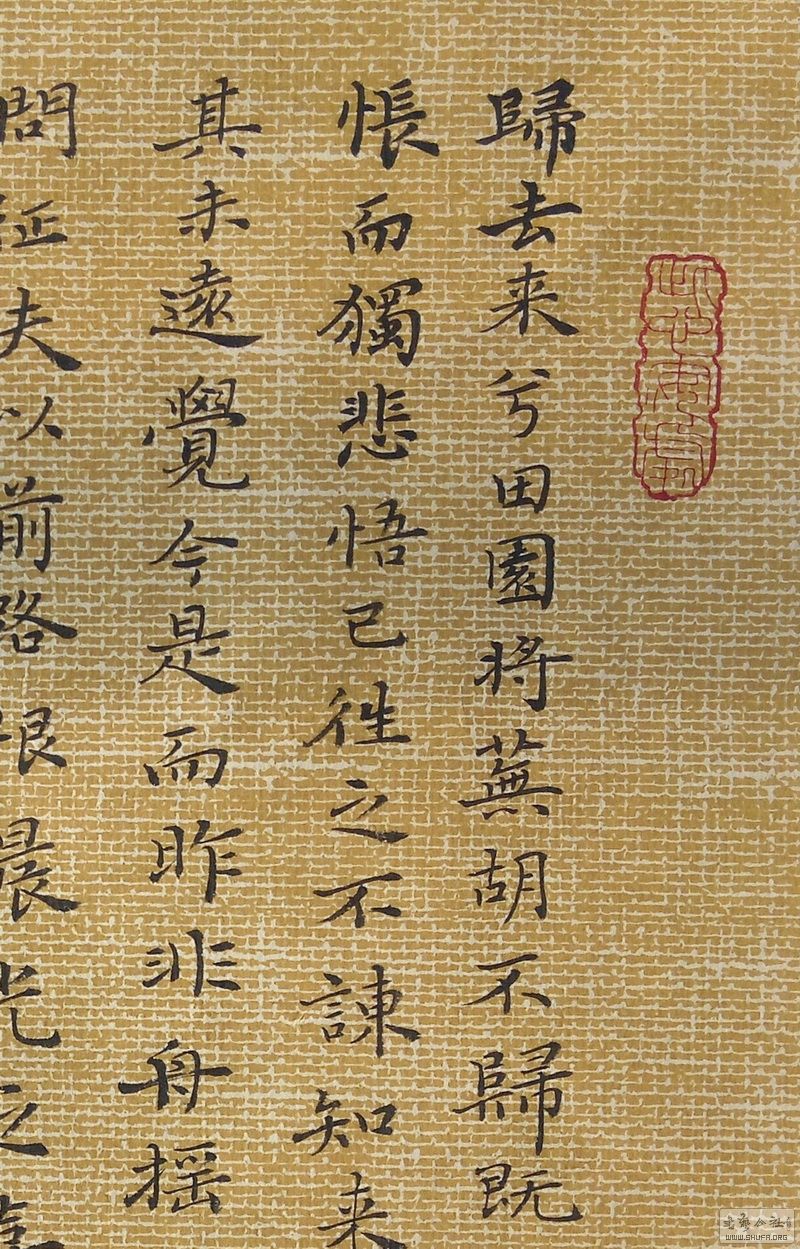 歸去来兮田園将蕪胡不歸既
悵而獨悲悟已往之不諫知来
其未遠覺今是而昨非舟摇
問征夫以前路恨晨光之
WWW.SHUFA.ORG